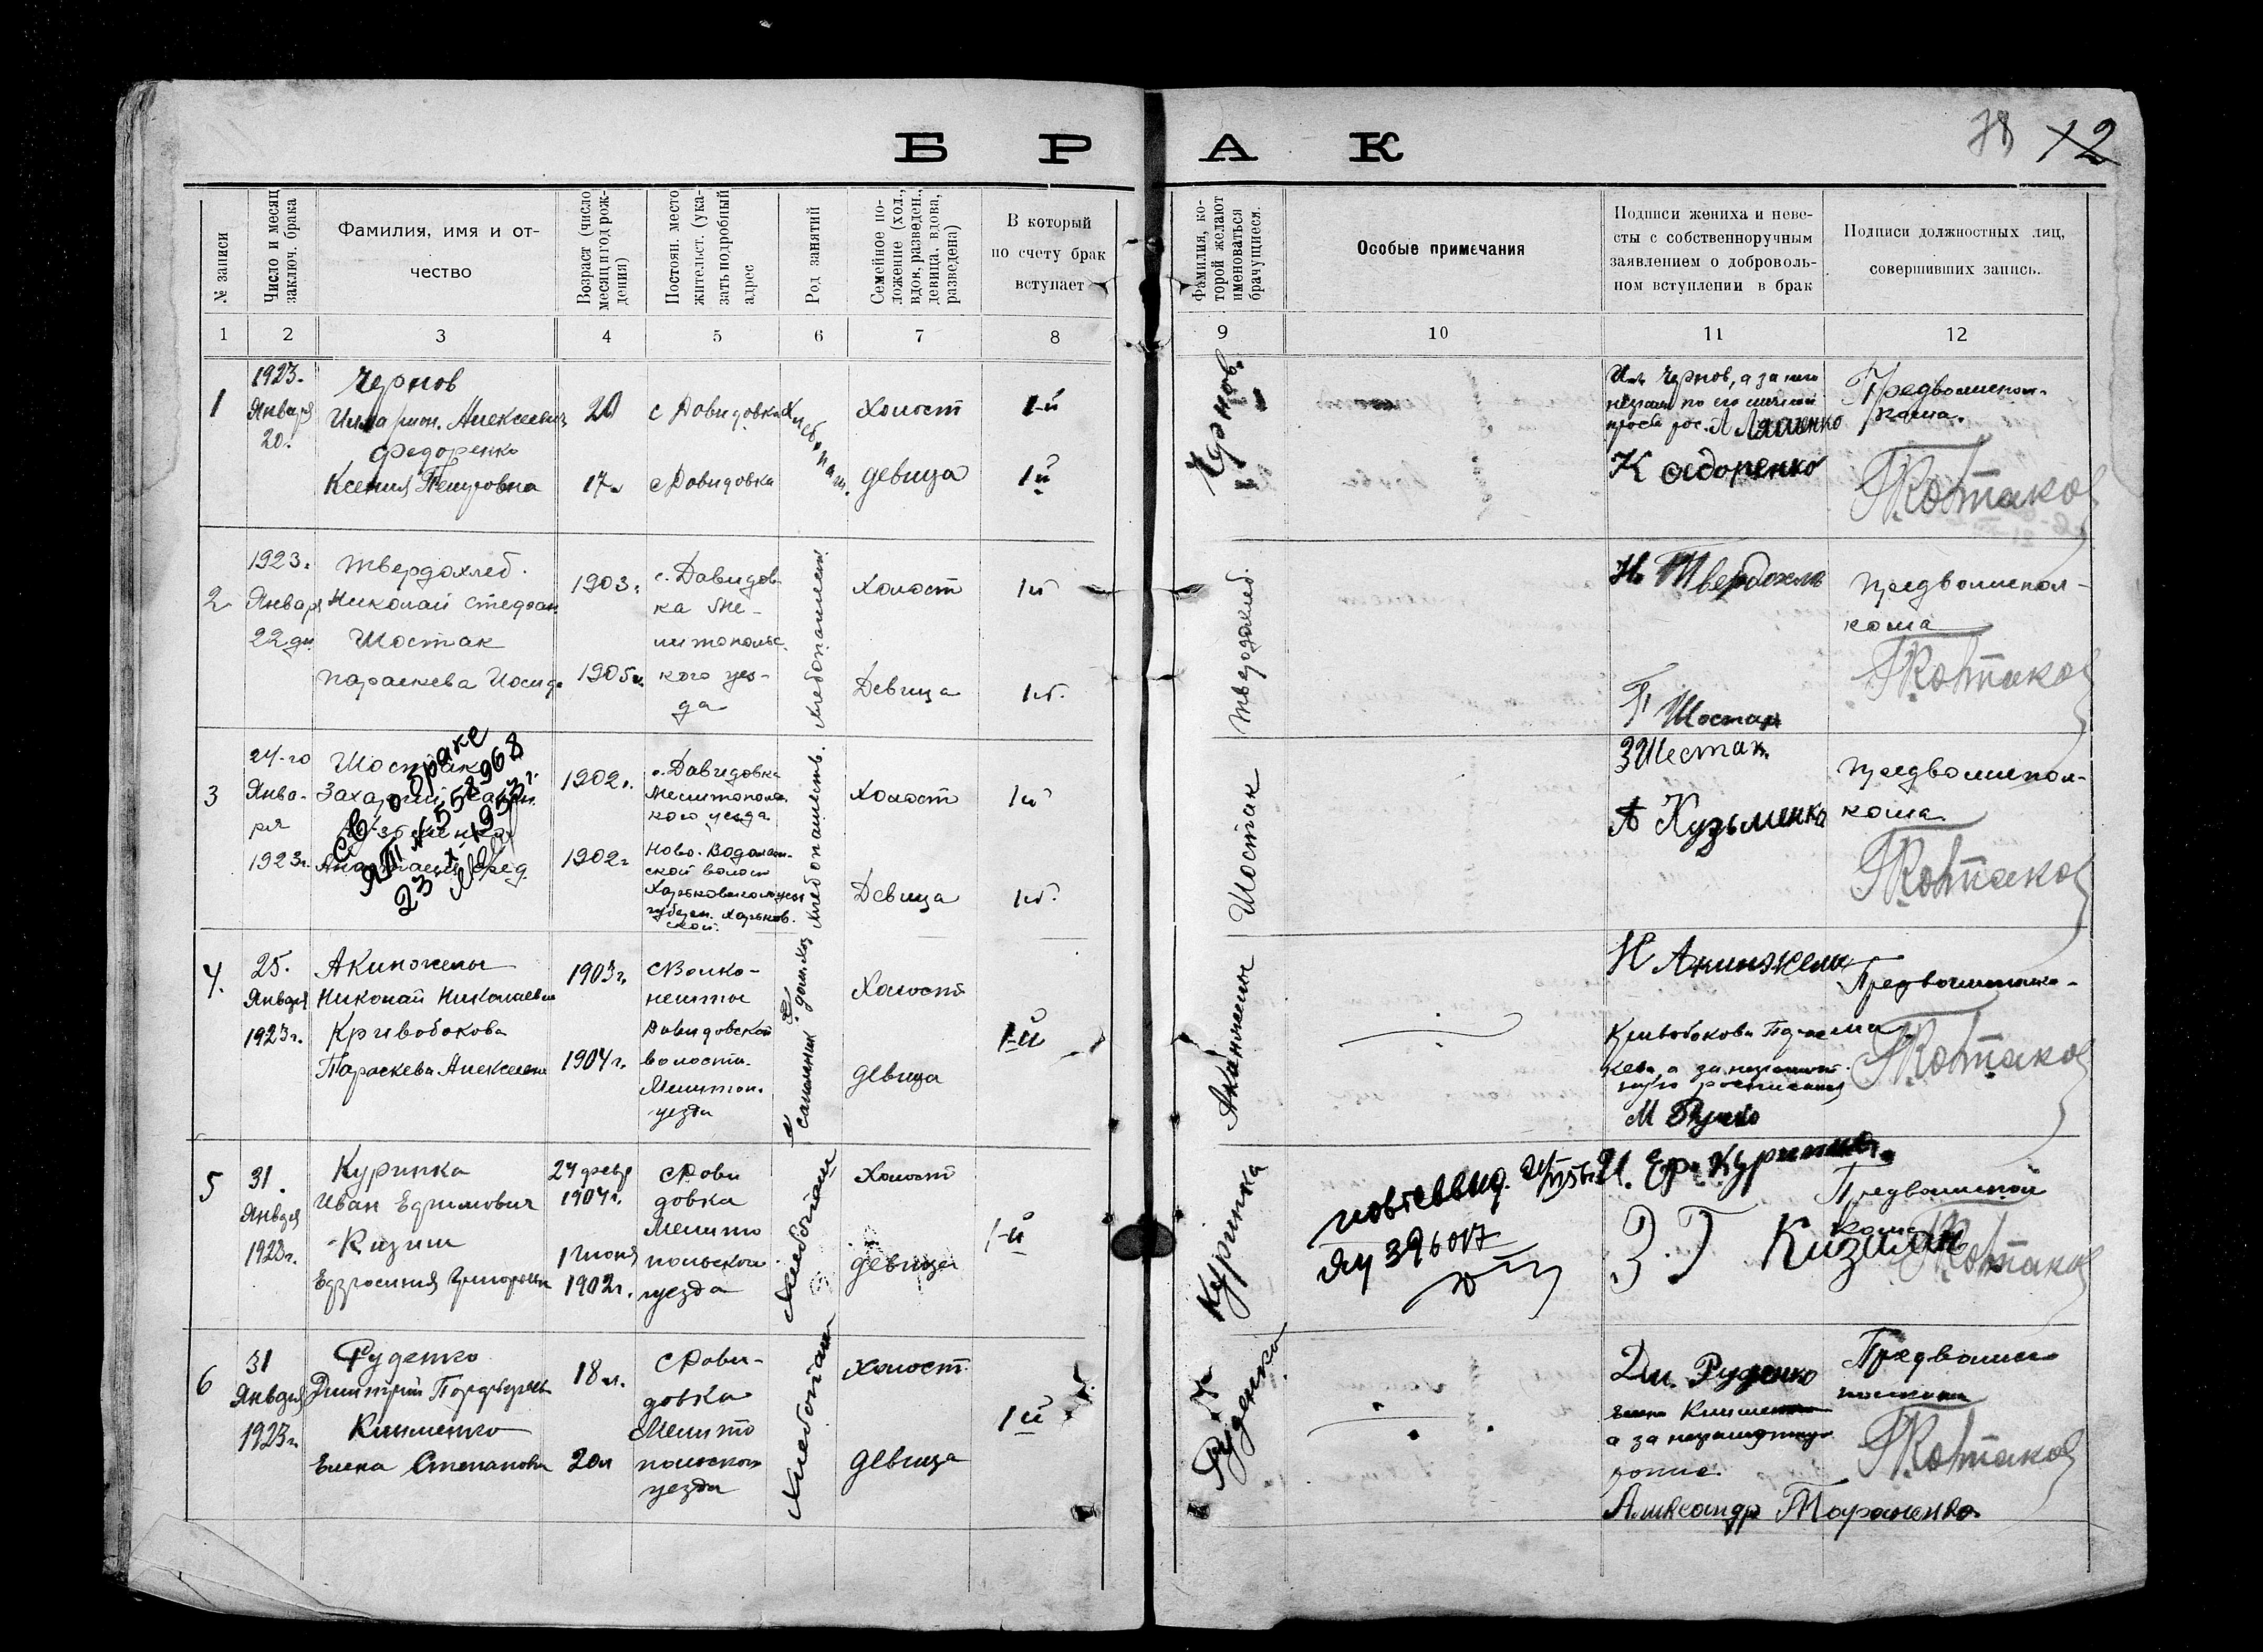 БРАК
78 12
№ записи
Число и месяц заключ. брака
Фамилия, имя и от-
чество
Возраст (число месяц и год рож-дения)
Постоян. место жительст. (ука-зать подробный адрес
Род занятий
Семейное по-ложение (хол., вдов, разведен., девица, вдова, разведена)
В который
по счету брак
вступает
Фамилия, ко-торой желают именоваться брачущиеся.
Особые примечания
Подписи жениха и неве-
сты с собственноручным
заявлением о доброволь-
ном вступлении в брак
Подписи должностных лиц,
совершивших запись.
1 2 3 4 5 6 7 8 9 10 11 12
1
1923.
Января
20.
Чернов
Илларион Алексеевич
Федоренко
Ксения Петровна
20
17
с Довидовка
с Довидовка
Хлебопаш.
Холост
девица
1-й
1й
Чернов
Ил. Чернов, а за него
неграм по его личной
прозб рос. А Ляшенко
К Федоренко
Предволиспол-
кома.
Котаков
2
1923.
Января
22 дн
Твердохлеб.
Николай Стефан
Шостак
Параскева Иосиф
1903г
1905г.
с. Давидов-
ка Ме-
литопольс
кого уез-
да
Хлебопашест
Холост
Девица
1й
1й.
Твердохлеб.
Н. Твердохлеб
П Шостак
Предволиспол-
кома
Котаков
3
24-го
Янва-
ря
1923г.
Шостак
Захарий
Кузьменко
Анастасия Фед.
Св о браке
ЯП № 558968
23 X-1953г.
1902г.
1902г
с. Давидовка
Мелитополь
кого уезда
Ново-Водолаж-
ской волост
Харьковского уез
губерн. Харьков.
ской.
Хлебопашеств.
Холост
Девица
1й
1й.
Шостак
З Шестак
А Кузьменко
Предволиспол-
кома
Котаков
4.
25.
Января
1923г.
Акинжелы
Николай Николаевич
Кривобокова
Параскева Алексеевна
1903г.
1904г.
с Волко-
нешты
Довидовской
волости
Мелитоп.
уезда
Холост
девица
1-й
Акинжелы
Н Акинжелы
Кривобокова Парас
кева, а за неграмот
ную росписался
М Руцко
Предволисполко-
ма
Котаков
5
31.
Января
1923г.
Куринка
Иван Ефимович
Кизим
Ефросиния Григорьевна
24 февр
1904г.
1 июня
1902г.
с Дови
довка
Мелито
польского
уезда
Хлебопаш
Холост
девица
1-й
Куринка
повт свид.
ЯУ 396017
И. Еф. Куринка.
З.Г Кизимк
Предволиспол
кома
Котаков
6
31
Января
1923г.
Руденко
Димитрий Порфирьев
Клименко
Елена Степановна
18 л.
20 л
с Дови-
довка
Мелито
польского
уезда
Хлебопаш
Холост
девица
1й
Руденко
Дм. Руденко
Елена Клименко
а за неграмотную
роспис.
Александр Тараненко
Предволис
полкома
Котаков